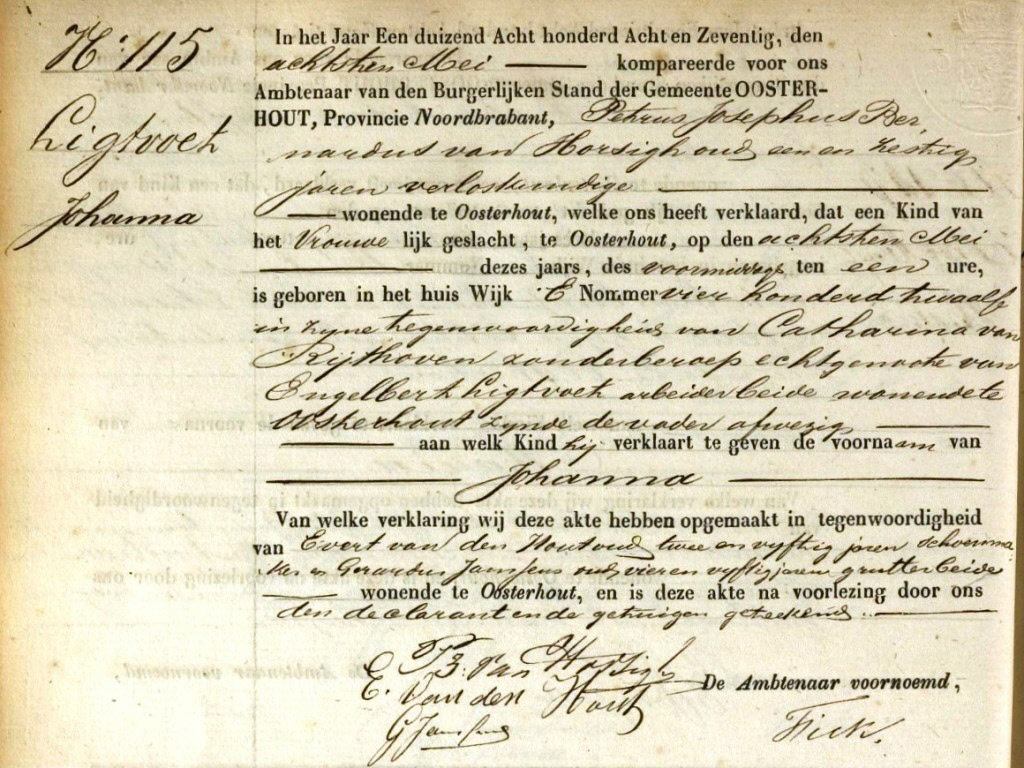 N: 115
Ligtvoet
Johanna
In het Jaar Een duizend Acht honderd Acht en Zeventig, den
achtsten Mei kompareerde voor ons
Ambtenaar van den Burgerlijken Stand der Gemeente OOSTER-
HOUT, Provincie Noordbrabant, Petrus Josephus Ber
nardus van Horsigh oud een en zestig
jaren verloskundige
wonende te Oosterhout, welke ons heeft verklaard, dat een Kind van
het Vrouwe lijk geslacht, te Oosterhout, op den achtsten Mei
dezes jaars, des voormiddags ten een ure,
is geboren in het huis Wijk E Nommer vier honderd twaalf
in zyne tegenwoordigheid van Catharina van
Rijthoven zonder beroep echtgenoote van
Engelbert Ligtvoet arbeider beide wonende te
Oosterhout zynde de vader afwezig
aan welk Kind hij verklaart te geven de voornaam van
Johanna
Van welke verklaring wij deze akte hebben opgemaakt in tegenwoordigheid
van Evert van den Hout oud twee en vyftig jaren schoenma
ker en Gerardus Janssens oud vier en vyftig jaren grutter beide
wonende te Oosterhout, en is deze akte na voorlezing door ons
den declarant en de getuigen geteekend.
P. B. van Horsigh
E. van den Hout
De Ambtenaar voornoemd,
G Janssens
Fick.